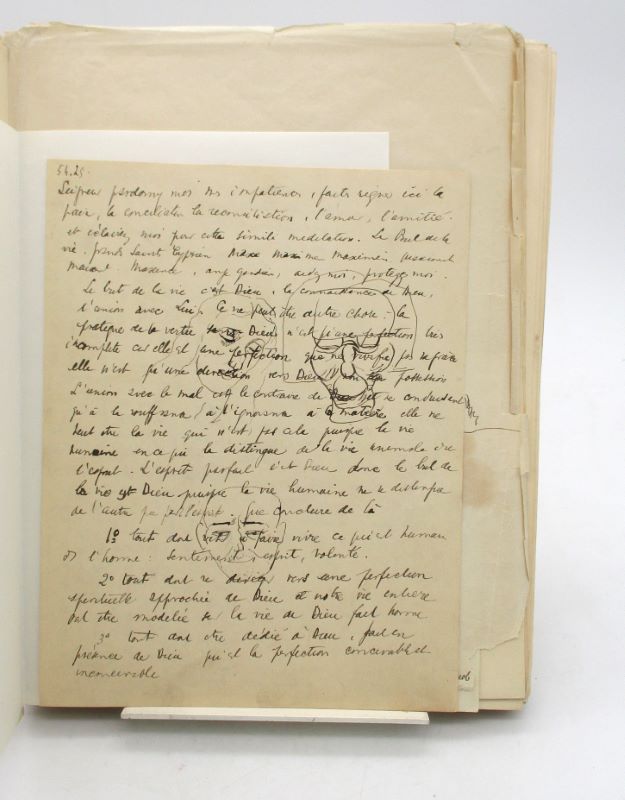 54.25.
Seigneur pardonnez moi mes impatiences, faites régner ici la
paix, la conciliation la réconciliation, l'amour, l'amitié.
et éclairez moi pour cette simile meditation. Le But de la
vie. Saint Cyprien Maxime Maximin
Maxence, ange gardien, aidez moi, protegez moi.
Le but de la vie c'est Dieu, la connaissance de Dieu,
l'union avec Lui. Ce ne peut être autre chose : la
pratique de la vertu Dieu n'est qu'une perfection très
incomplète car elle est une perfection que ne pas
elle n'est qu'une direction vers Dieu non possession
L'union avec le mal est le contraire de Dieu conduisant
qu'à la souffrance, à l'ignorance à la matière elle ne
peut être la vie qui n'est pas cela puisque la vie
humaine en ce qui la distingue de la vie animale c'est
l'esprit. L'esprit parfait c'est Dieu donc le but de
la vie est Dieu puisque la vie humaine ne se distingue
de l'autre que par l'esprit. Que conclure de là
1º tout doit faire vivre ce qui est humain
ds l'homme : sentiment, esprit, volonté.
2º tout doit se diriger vers une perfection
spirituelle approchée de Dieu et notre vie entière
doit être modelée sur la vie de Dieu fait homme
3º tout doit être dédié à Dieu, fait en
présence de Dieu qui est la perfection concevable et
inconcevable